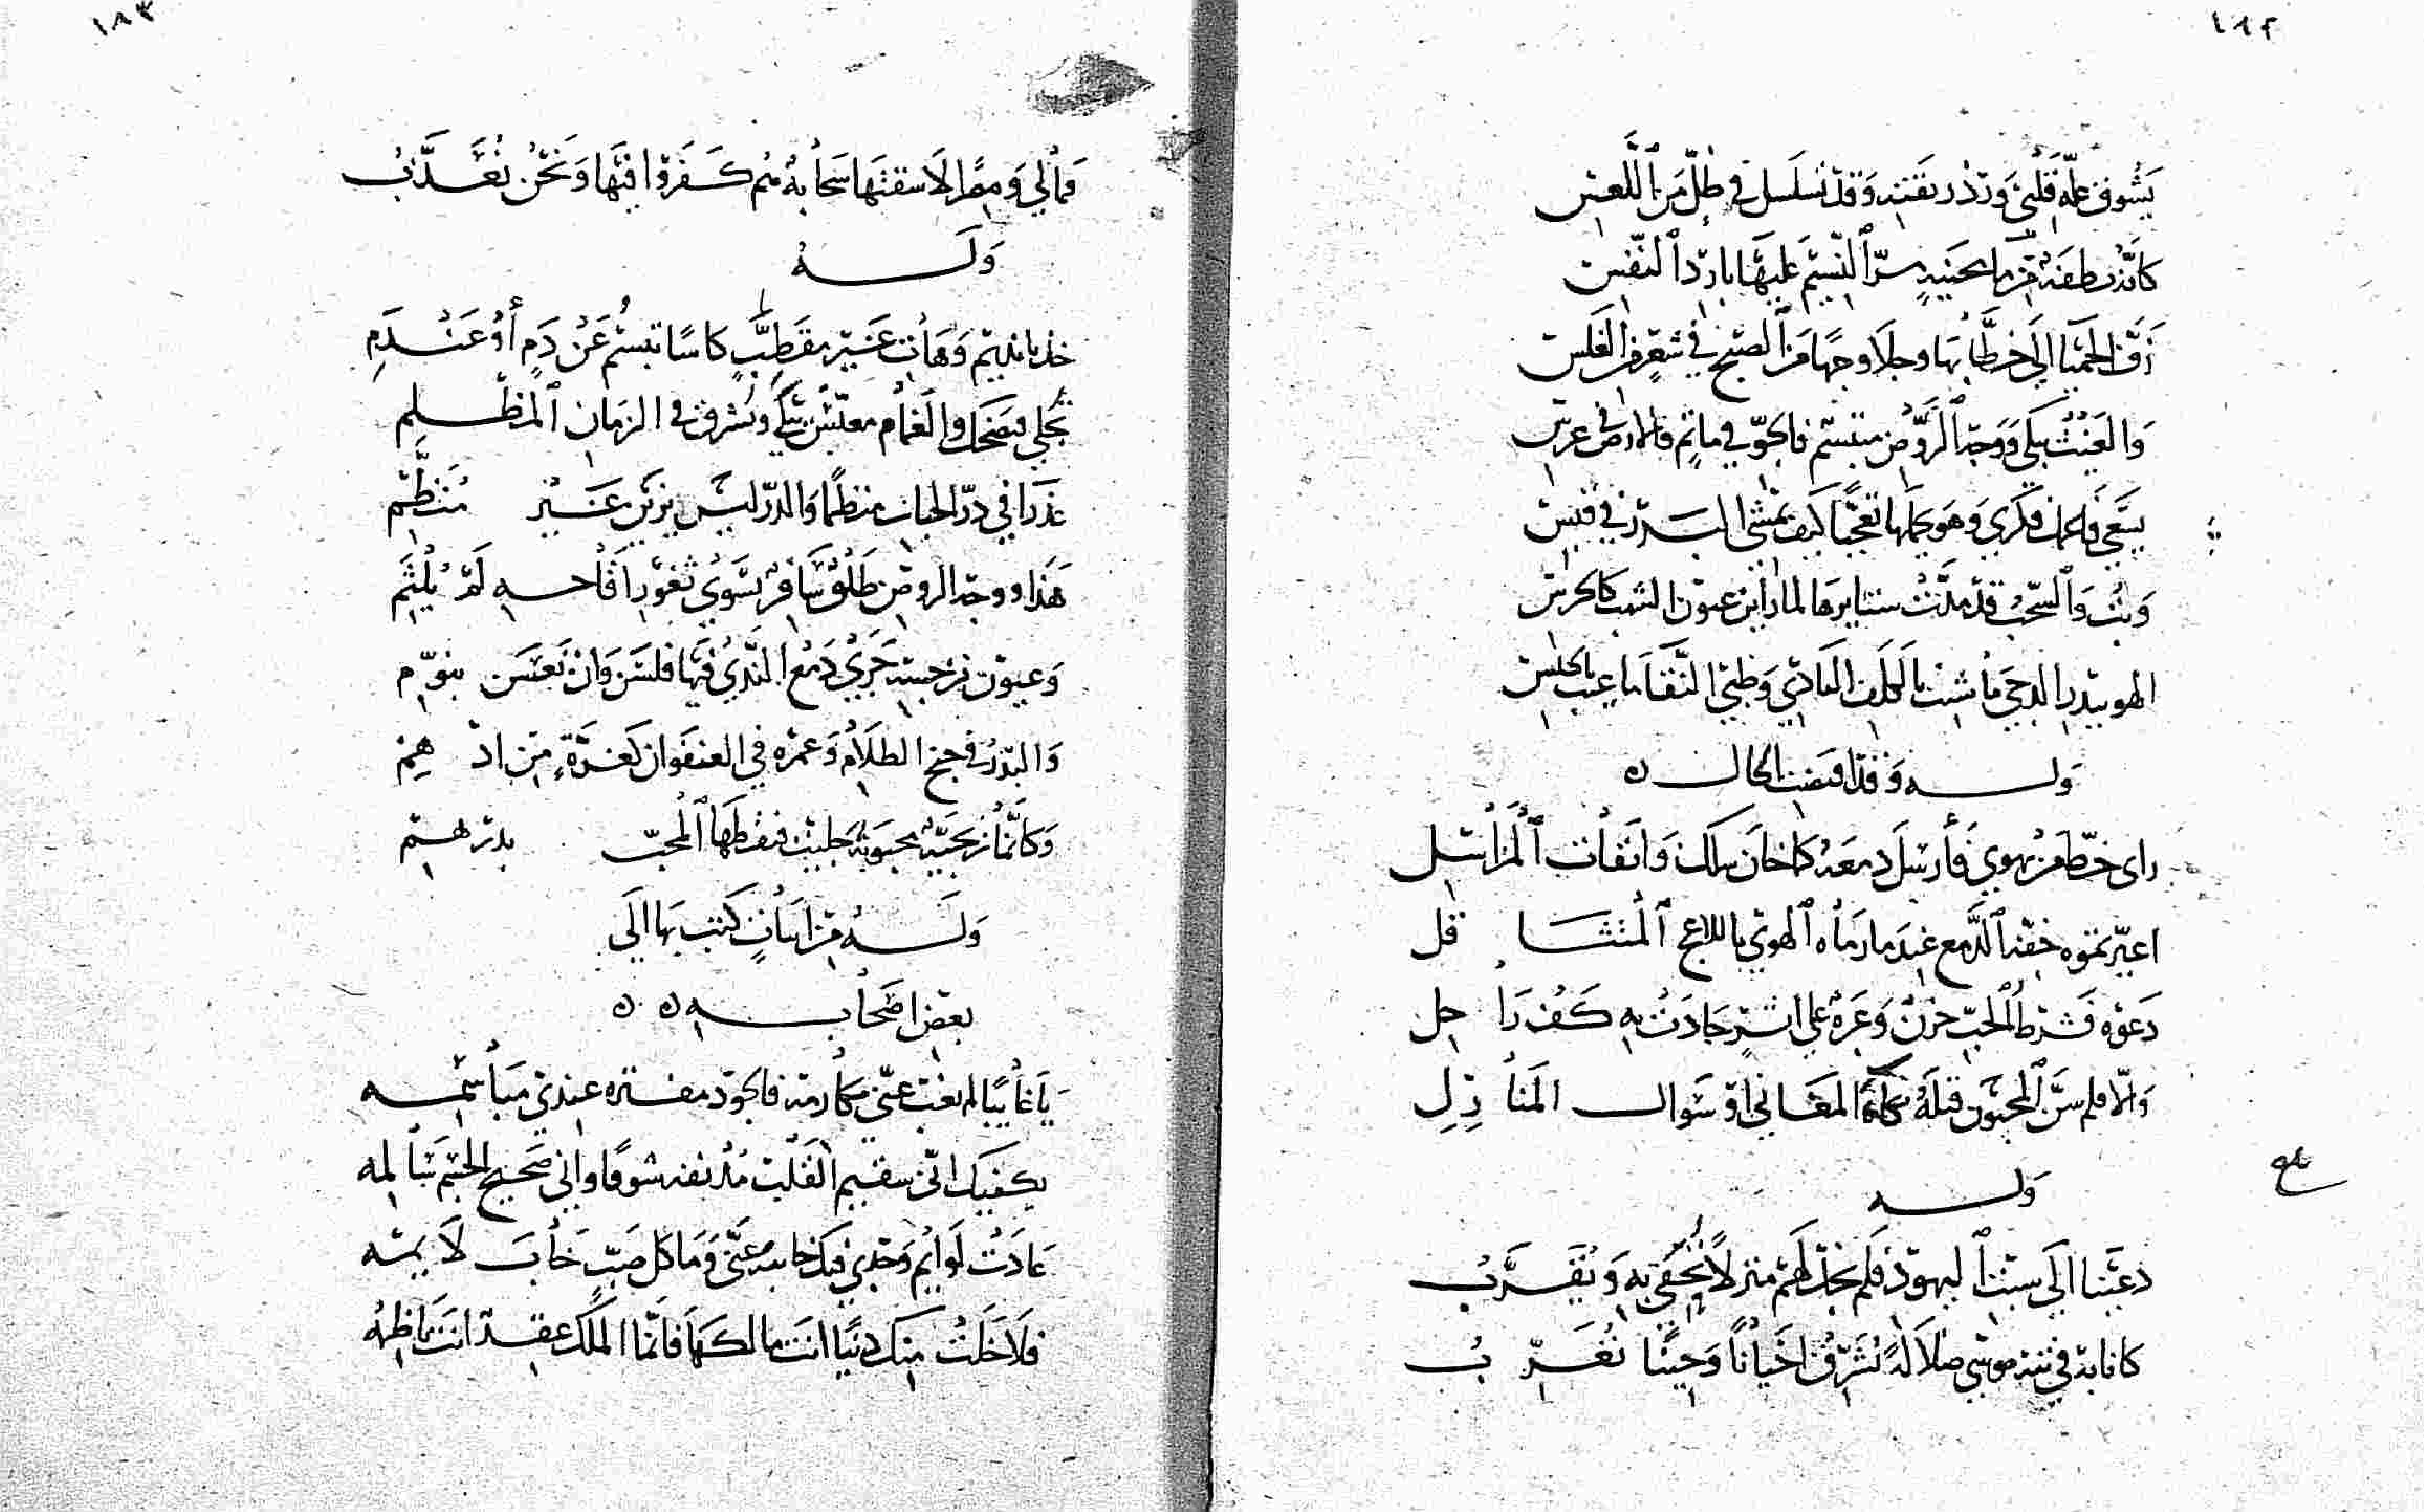 ١٨٢
يشوق علة قلبي ورد ريقته وقد تسلسل في ظل من اللعس
كأنه نطفة من ماء محنية سرّ النسيم عليها بارد النفس
زف الحميا إلى خطابها وجلا وجها من الصبح في شعر من الغلس
والغيث يبكي ووجه الروض مبتسم فالجوّ في ماتم فالارض في عرس
يسعى فاعمل فكري وهو يحملها تعجّبا كيف يمشي البدر في قبس
وبتّ والسحب قد مدّت ستايرها لما راين عيون الشهب كالحرس
الهو ببدر الدجى ما شئت بالملك العادي وظبي النقا ما عبت بالخلس
ولـه وقد اقتضت الحال ه
راى خطّ من يهوي فأرسل دمعه كما خان سلك وانقات المراسل
اعيرتموه خفقه الدمع عند ما رماه الهوي باللاعج المتثا قل
دعوه فشرط الحبّ حزن وعَرة على اثر حادت به كف راحل
والّا فلم سنّ المحبون قبله بكاء المغاني او سوال المنازل
وله
دعينا الى سبت اليهود فلم نجد لهم منزلاً نُحفي به ونقرّب
كانا به في تيه موسى ضلالة نشرّق احيانًا وحينًا نغرّب
بلغ
١٨٣
فمالي ومِمّا لا سقتها سحابة هُم كفروا فيها ونحن نعذّب
ولـه
خذ يا نديم وهات غير مقطب كاسًا تبسّم عن دم أو عندم
تجلي فتضحك والغمام معبّس يبكي وتشرق في الزمان المظلم
عذرا في درّ الحباب منظمًا والدرّ ليس يزين غير منظّم
هذا ووجه الروض طلق سافر يسوي ثغور اقاحه لم يلثم
وعيون نرجسه جري دمع الندي فيها فلسن وان نعسن بنوّم
والبدر في جنح الظلام وعمره في العنفوان كغرّة من ادهم
وكانما نرجسيّة محبوبة جليت فنقطها المحبّ بدرهم
وله من ابيات كتب بها الى
بعض اصحابه ه ه
يا غايبًا لم تغب عني مكارمه فالجود مفتره عندي مباسمه
يكفيك اني سقيم القلب مدنفه شوقًا واني صحيح الجسم سالمه
عادت لوايم وجدي فيك خايبه عنّي وما كل صبّ خاب لايمه
فلا خلت منك دنيًا انت مالكها فانما الملك عقد انت ناظمه